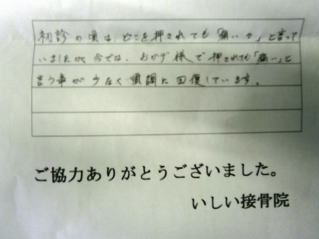 初診の頃は、どこを押されても「痛いヶ」と言って
いましたが、今では、おかげ様で押されても「痛い」と
言う事が少なく順調に回復しています。
ご協力ありがとうございました。
いしい接骨院